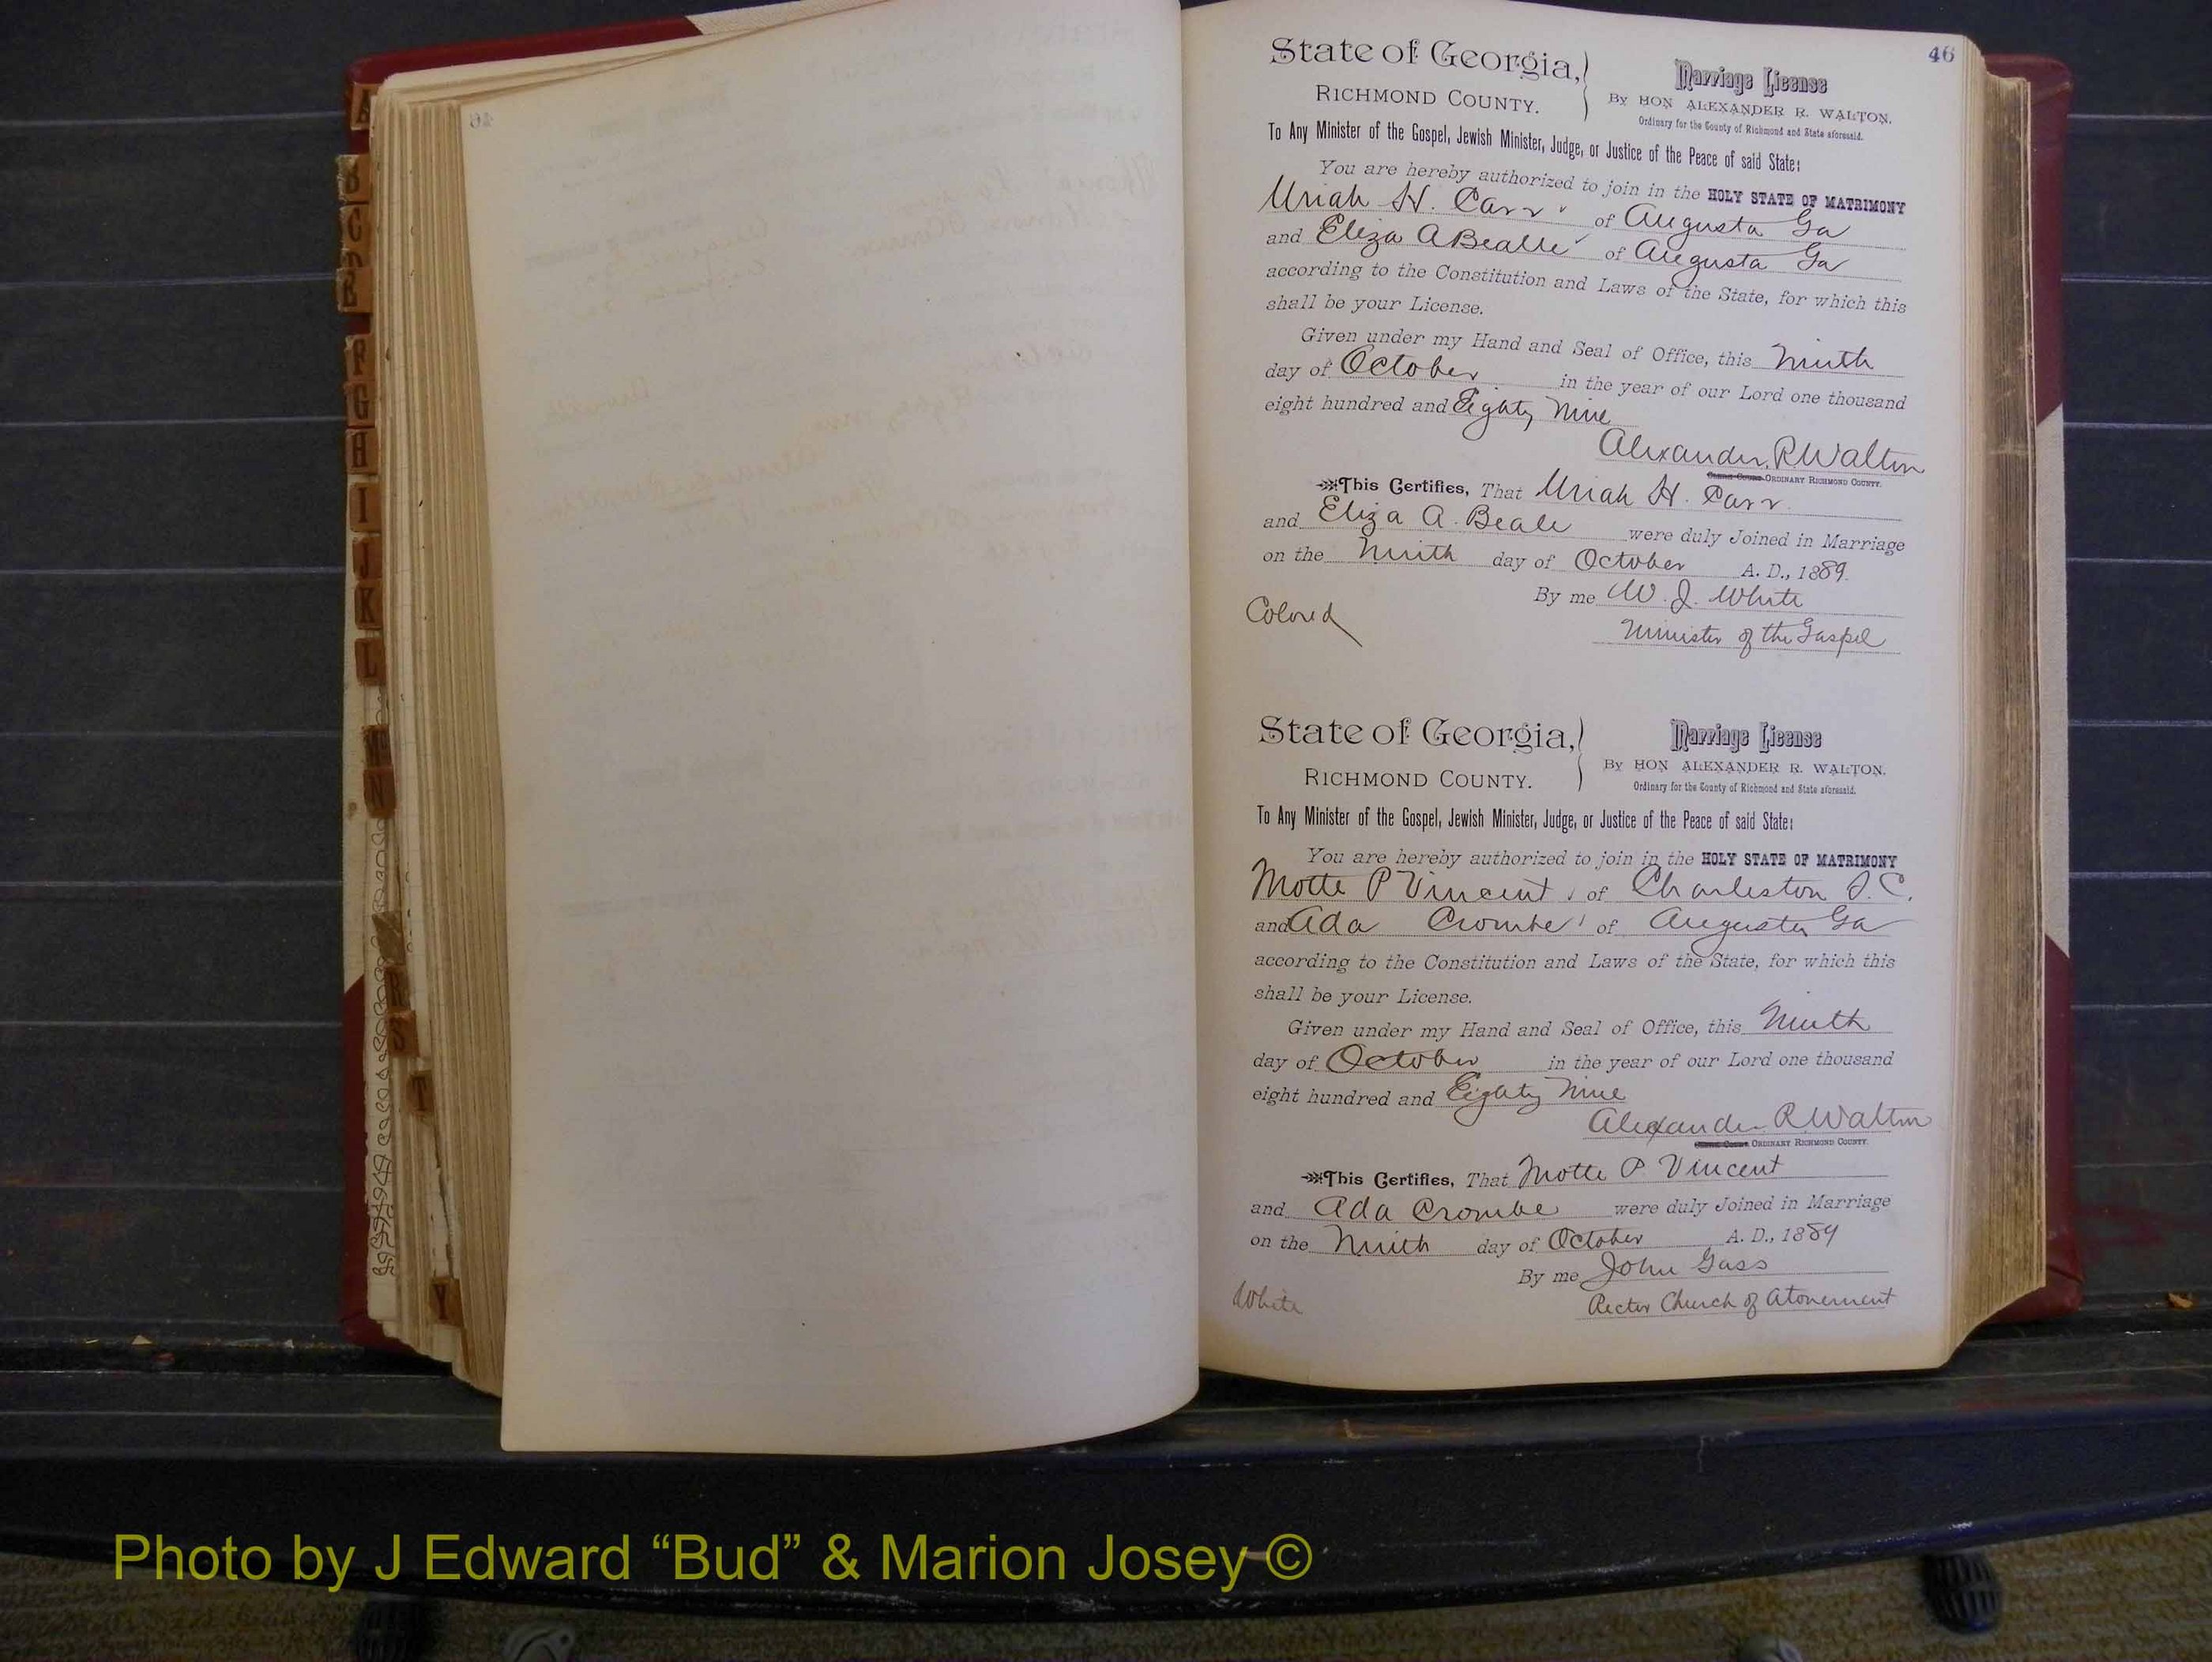 46
State of Georgia,
RICHMOND COUNTY.
Marriage License
By HON ALEXANDER R. WALTON.
Ordinary for the County of Richmond and State aforesaid.
To Any Minister of the Gospel, Jewish Minister, Judge, or Justice of the Peace of said State:
You are hereby authorized to join in the HOLY STATE OF MATRIMONY
Uriah H. Carr of Augusta Ga
and Eliza A Bealle of Augusta Ga
according to the Constitution and Laws of the State, for which this
shall be your License.
Given under my Hand and Seal of Office, this Ninth
day of October in the year of our Lord one thousand
eight hundred and Eighty Nine
Alexander R Walton
ORDINARY RICHMOND COUNTY.
This Certifies, That Uriah H. Carr
and Eliza A. Beale were duly Joined in Marriage
on the Ninth day of October A. D., 1889.
By me W. J. White
Colored
Minister of the Gospel
State of Georgia,
RICHMOND COUNTY.
Marriage License
By HON ALEXANDER R. WALTON.
Ordinary for the County of Richmond and State aforesaid.
To Any Minister of the Gospel, Jewish Minister, Judge, or Justice of the Peace of said State:
You are hereby authorized to join in the HOLY STATE OF MATRIMONY
Motte P Vincent of Charleston S.C.
and Ada Crombe of Augusta Ga
according to the Constitution and Laws of the State, for which this
shall be your License.
Given under my Hand and Seal of Office, this Ninth
day of October in the year of our Lord one thousand
eight hundred and Eighty Nine
Alexander R Walton
ORDINARY RICHMOND COUNTY.
This Certifies, That Motte P. Vincent
and Ada Crombe were duly Joined in Marriage
on the Ninth day of October A. D., 1889
By me John Gass
White
Rector Church of Atonement
B
C
D
F
G
H
I
J
K
L
M
N
R
S
T
Y
Photo by J Edward “Bud” & Marion Josey ©